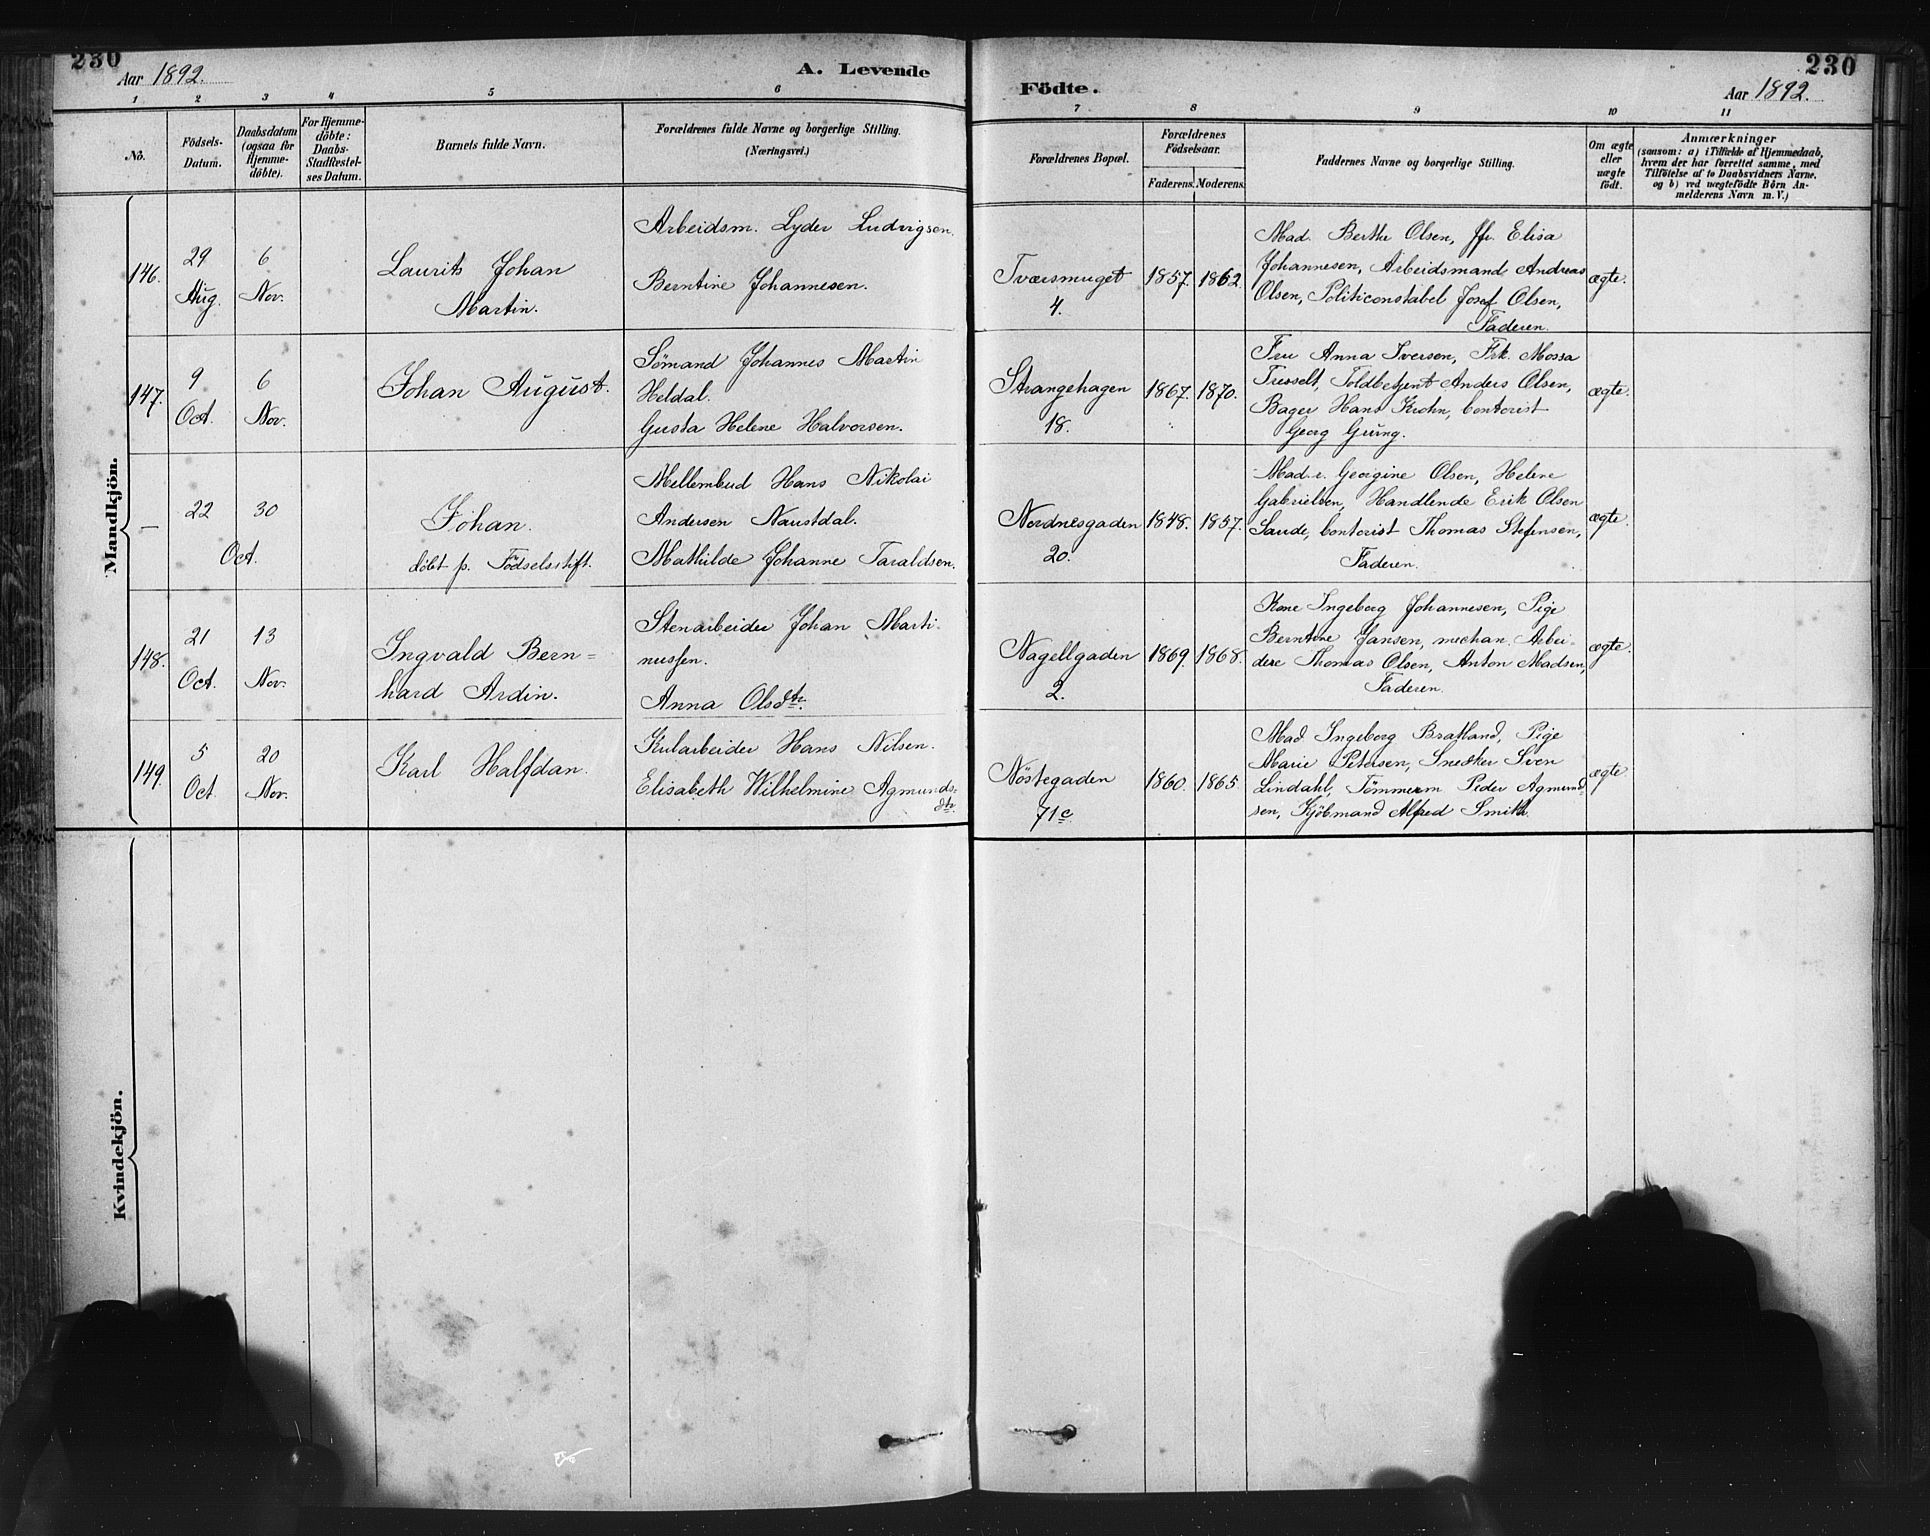 230
Aar 1892.
A. Levende
Födte.
Aar 1892.
230
1 2 3 4 5 6 7 8 9 10 11
No.
Födsels-
Datum.
Daabsdatum
(ogsaa for
Hjemme-
döbte).
For Hjemme-
döbte:
Daabs-
Stadfæstel-
ses Datum.
Barnets fulde Navn.
Forældrenes fulde Navne og borgerlige Stilling.
(Næringsvei.)
Forældrenes Bopæl.
Forældrenes
Födselsaar.
Faderens. Moderens.
Faddernes Navne og borgerlige Stilling.
Om ægte
eller
uægte
födt.
Anmærkninger
(saasom: a) i Tilfælde af Hjemmedaab,
hvem der har forrettet samme, med
Tilföielse af to Daabsvidners Navne,
og b) ved uægtefödte Börn An-
melderens Navn m. V.)
Mandkjön.
146.
29
Aug.
6
Nov.
Laurits Johan
Martin.
Arbeidsm. Lyder Ludvigsen.
Berntine Johannesen.
Tværsmuget
4.
1857. 1862.
Mad. Berthe Olsen, Jfr. Elisa
Johannesen, Arbeidsmand Andreas
Olsen, Politiconstabel Josef Olsen,
Faderen.
ægte.
147.
9
Oct.
6
Nov.
Johan August.
Sömand Johannes Martin
Heldal.
Gusta Helene Halvorsen.
Strangehagen
18.
1867. 1870.
Fru Anna Iversen, Frk. Mossa
Tresselt, Toldbetjent Anders Olsen,
Bager Hans Krohn, Contorist
Georg Grüng.
ægte.
—
22
30
Oct.
Johan.
döbt p. Födselsstift.
Mellembud Hans Nikolai
Andersen Naustdal.
Mathilde Johanne Taraldsen.
Nordnesgaden
20.
1848. 1857.
Mad. e. Georgine Olsen, Helene
Gabrielsen, Handlende Erik Olsen
Saude, Contorist Thomas Stefensen,
Faderen.
ægte.
148.
21
Oct.
13
Nov.
Ingvald Bern=
hard Ardin.
Stenarbeider Johan Marti-
nussen.
Anna Olsdtr.
Nagellgaden
2.
1869. 1868.
Kone Ingeborg Johannesen, Pige
Berntine Jansen, mechan. Arbei-
dere Thomas Olsen, Anton Madsen,
Faderen.
ægte.
149.
5
Oct.
20
Nov.
Karl Halfdan.
Kularbeider Hans Nilsen.
Elisabeth Wilhelmine Agmunds-
dtr.
Nöstegaden
71c.
1860. 1865
Mad. Ingeborg Bratland, Pige
Marie Petersen, Snedker Sven
Lindahl, Tömmerm Peder Agmund-
sen, Kjöbmand Alfred Smith.
ægte.
Kvindekjön.